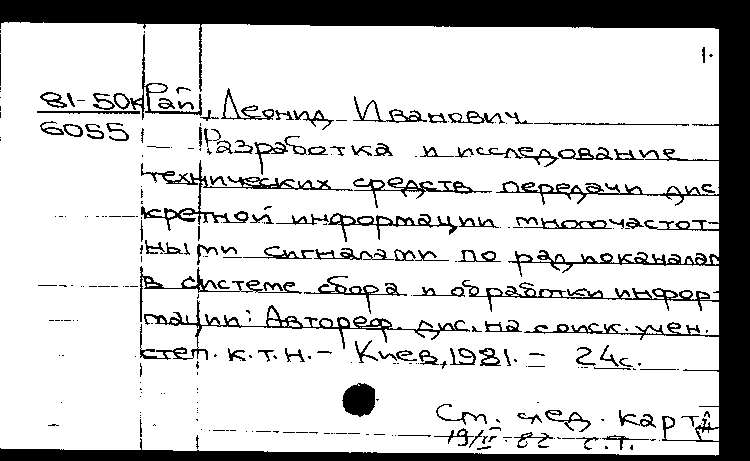 1.
81-50к Рап, Леонид Иванович.
6055 Разработка и исследование
технических средств передачи дис
кретной информации многочастот-
ными сигналами по радиоканалам
в системе сбора и обработки инфор-
мации: Автореф. дис. на соиск. учен.
степ. к.т.н. - Киев, 1981. - 24с.
См. след. карт
19/II 82 С.Т.